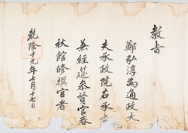 教旨
鄭弘淳為通政大
夫承政院右承旨
兼經筵參贊官春
秋館修撰官者
乾隆十九年七月十七日